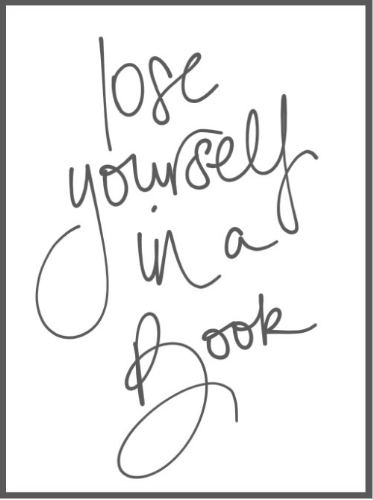 lose
yourself
in a
Book